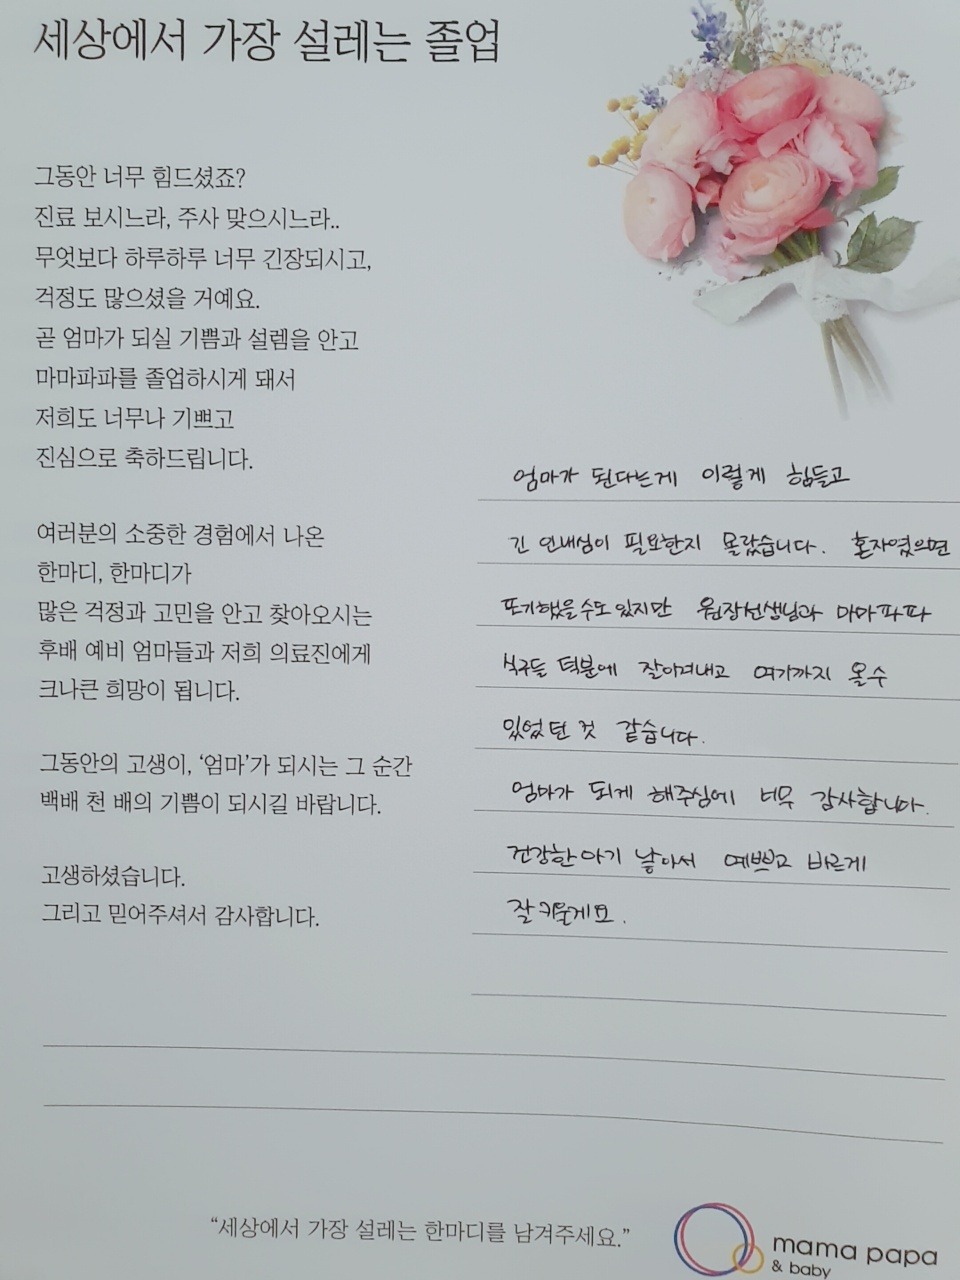 세상에서 가장 설레는 졸업
그동안 너무 힘드셨죠?
진료 보시느라, 주사 맞으시느라..
무엇보다 하루하루 너무 긴장되시고,
걱정도 많으셨을 거예요.
곧 엄마가 되실 기쁨과 설렘을 안고
마마파파를 졸업하시게 돼서
저희도 너무나 기쁘고
진심으로 축하드립니다.
여러분의 소중한 경험에서 나온
한마디, 한마디가
많은 걱정과 고민을 안고 찾아오시는
후배 예비 엄마들과 저희 의료진에게
크나큰 희망이 됩니다.
그동안의 고생이, '엄마'가 되시는 그 순간
백배 천 배의 기쁨이 되시길 바랍니다.
고생하셨습니다.
그리고 믿어주셔서 감사합니다.
엄마가 된다는게 이렇게 힘들고
긴 인내심이 필요한지 몰랐습니다. 혼자였으면
포기했을수도 있지만 원장선생님과 마마파파
식구들 덕분에 잘이겨내고 여기까지 올수
있었던 것 같습니다.
엄마가 되게 해주심에 너무 감사합니다.
건강한아기 낳아서 예쁘고 바르게
잘키울게요.
"세상에서 가장 설레는 한마디를 남겨주세요."
mama papa
& baby